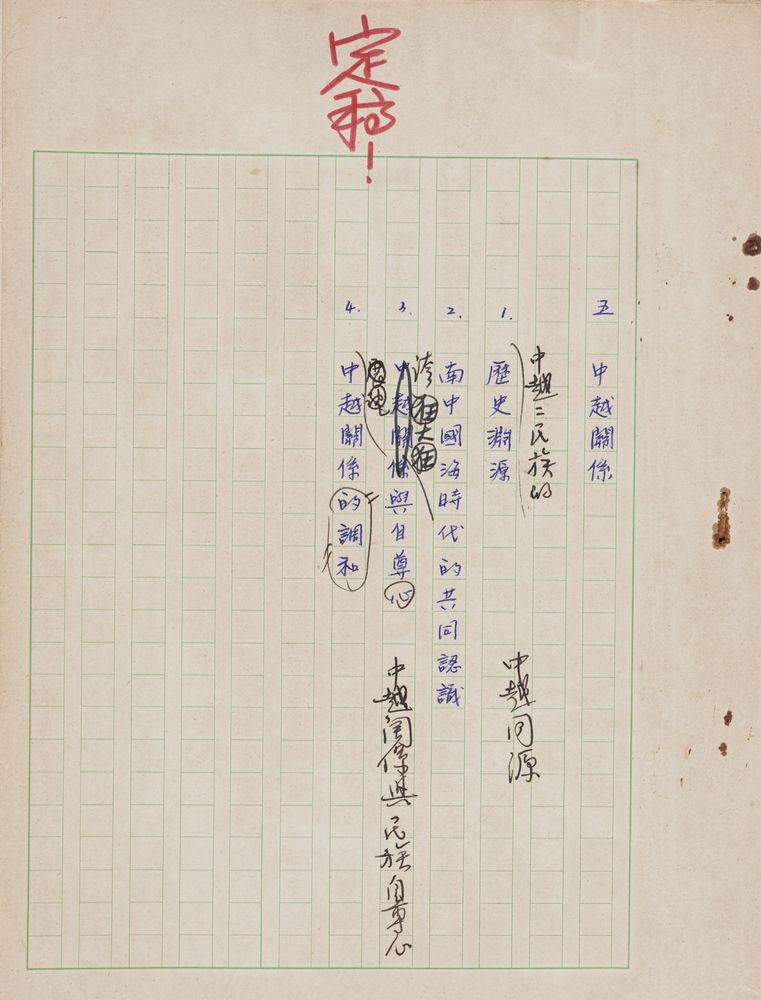 定稿！
五 中越關係
中越二民族的
1. 歷史淵源
中越同源
2. 南中國海時代的共同認識
誇
3. 中越關係與自尊心
中越関係與民族自尊心
4. 中越關係的調和